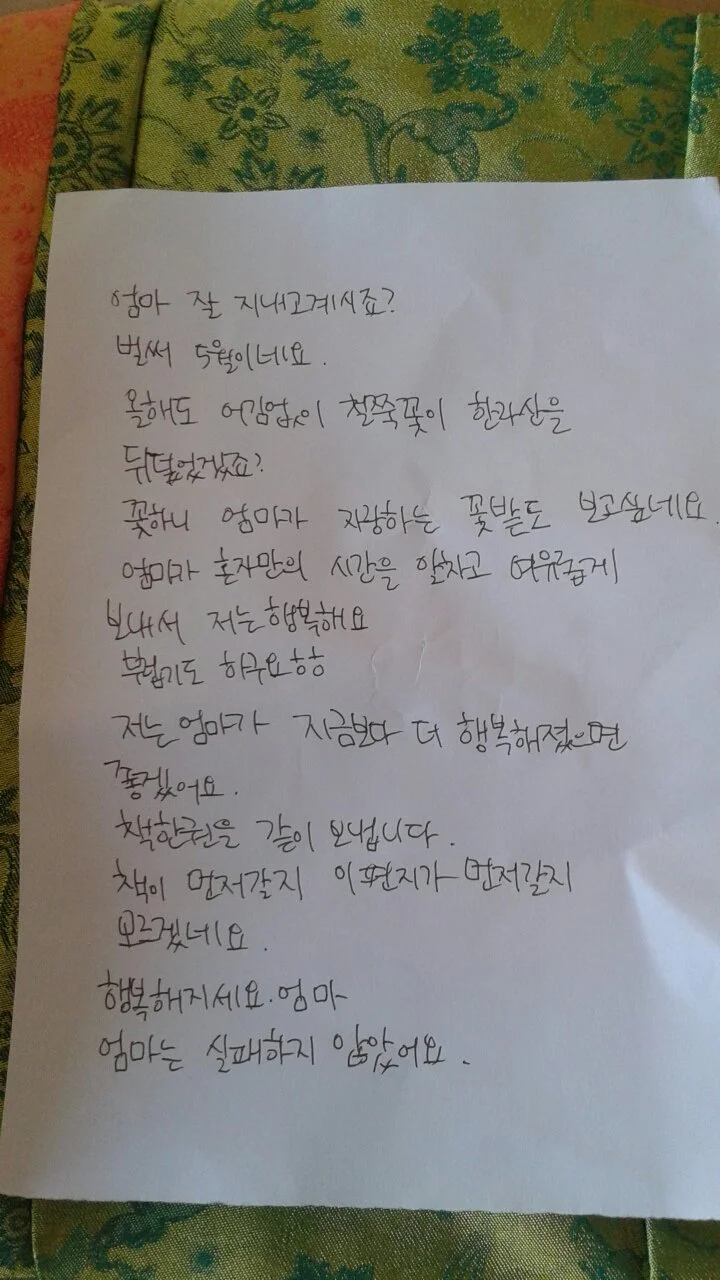 엄마 잘 지내고계시죠?
벌써 5월이네요.
올해도 어김없이 철쭉꽃이 한라산을
뒤덮었겠죠?
꽃하니 엄마가 자랑하는 꽃밭도 보고싶네요.
엄마가 혼자만의 시간을 알차고 여유롭게
보내서 저는행복해요
부럽기도 하구요ㅎㅎ
저는엄마가 지금보다 더 행복해졌으면
좋겠어요.
책한권을 같이 보냅니다.
책이 먼저갈지 이편지가 먼저갈지
모르겠네요.
행복해지세요.엄마
엄마는 실패하지 않았어요.